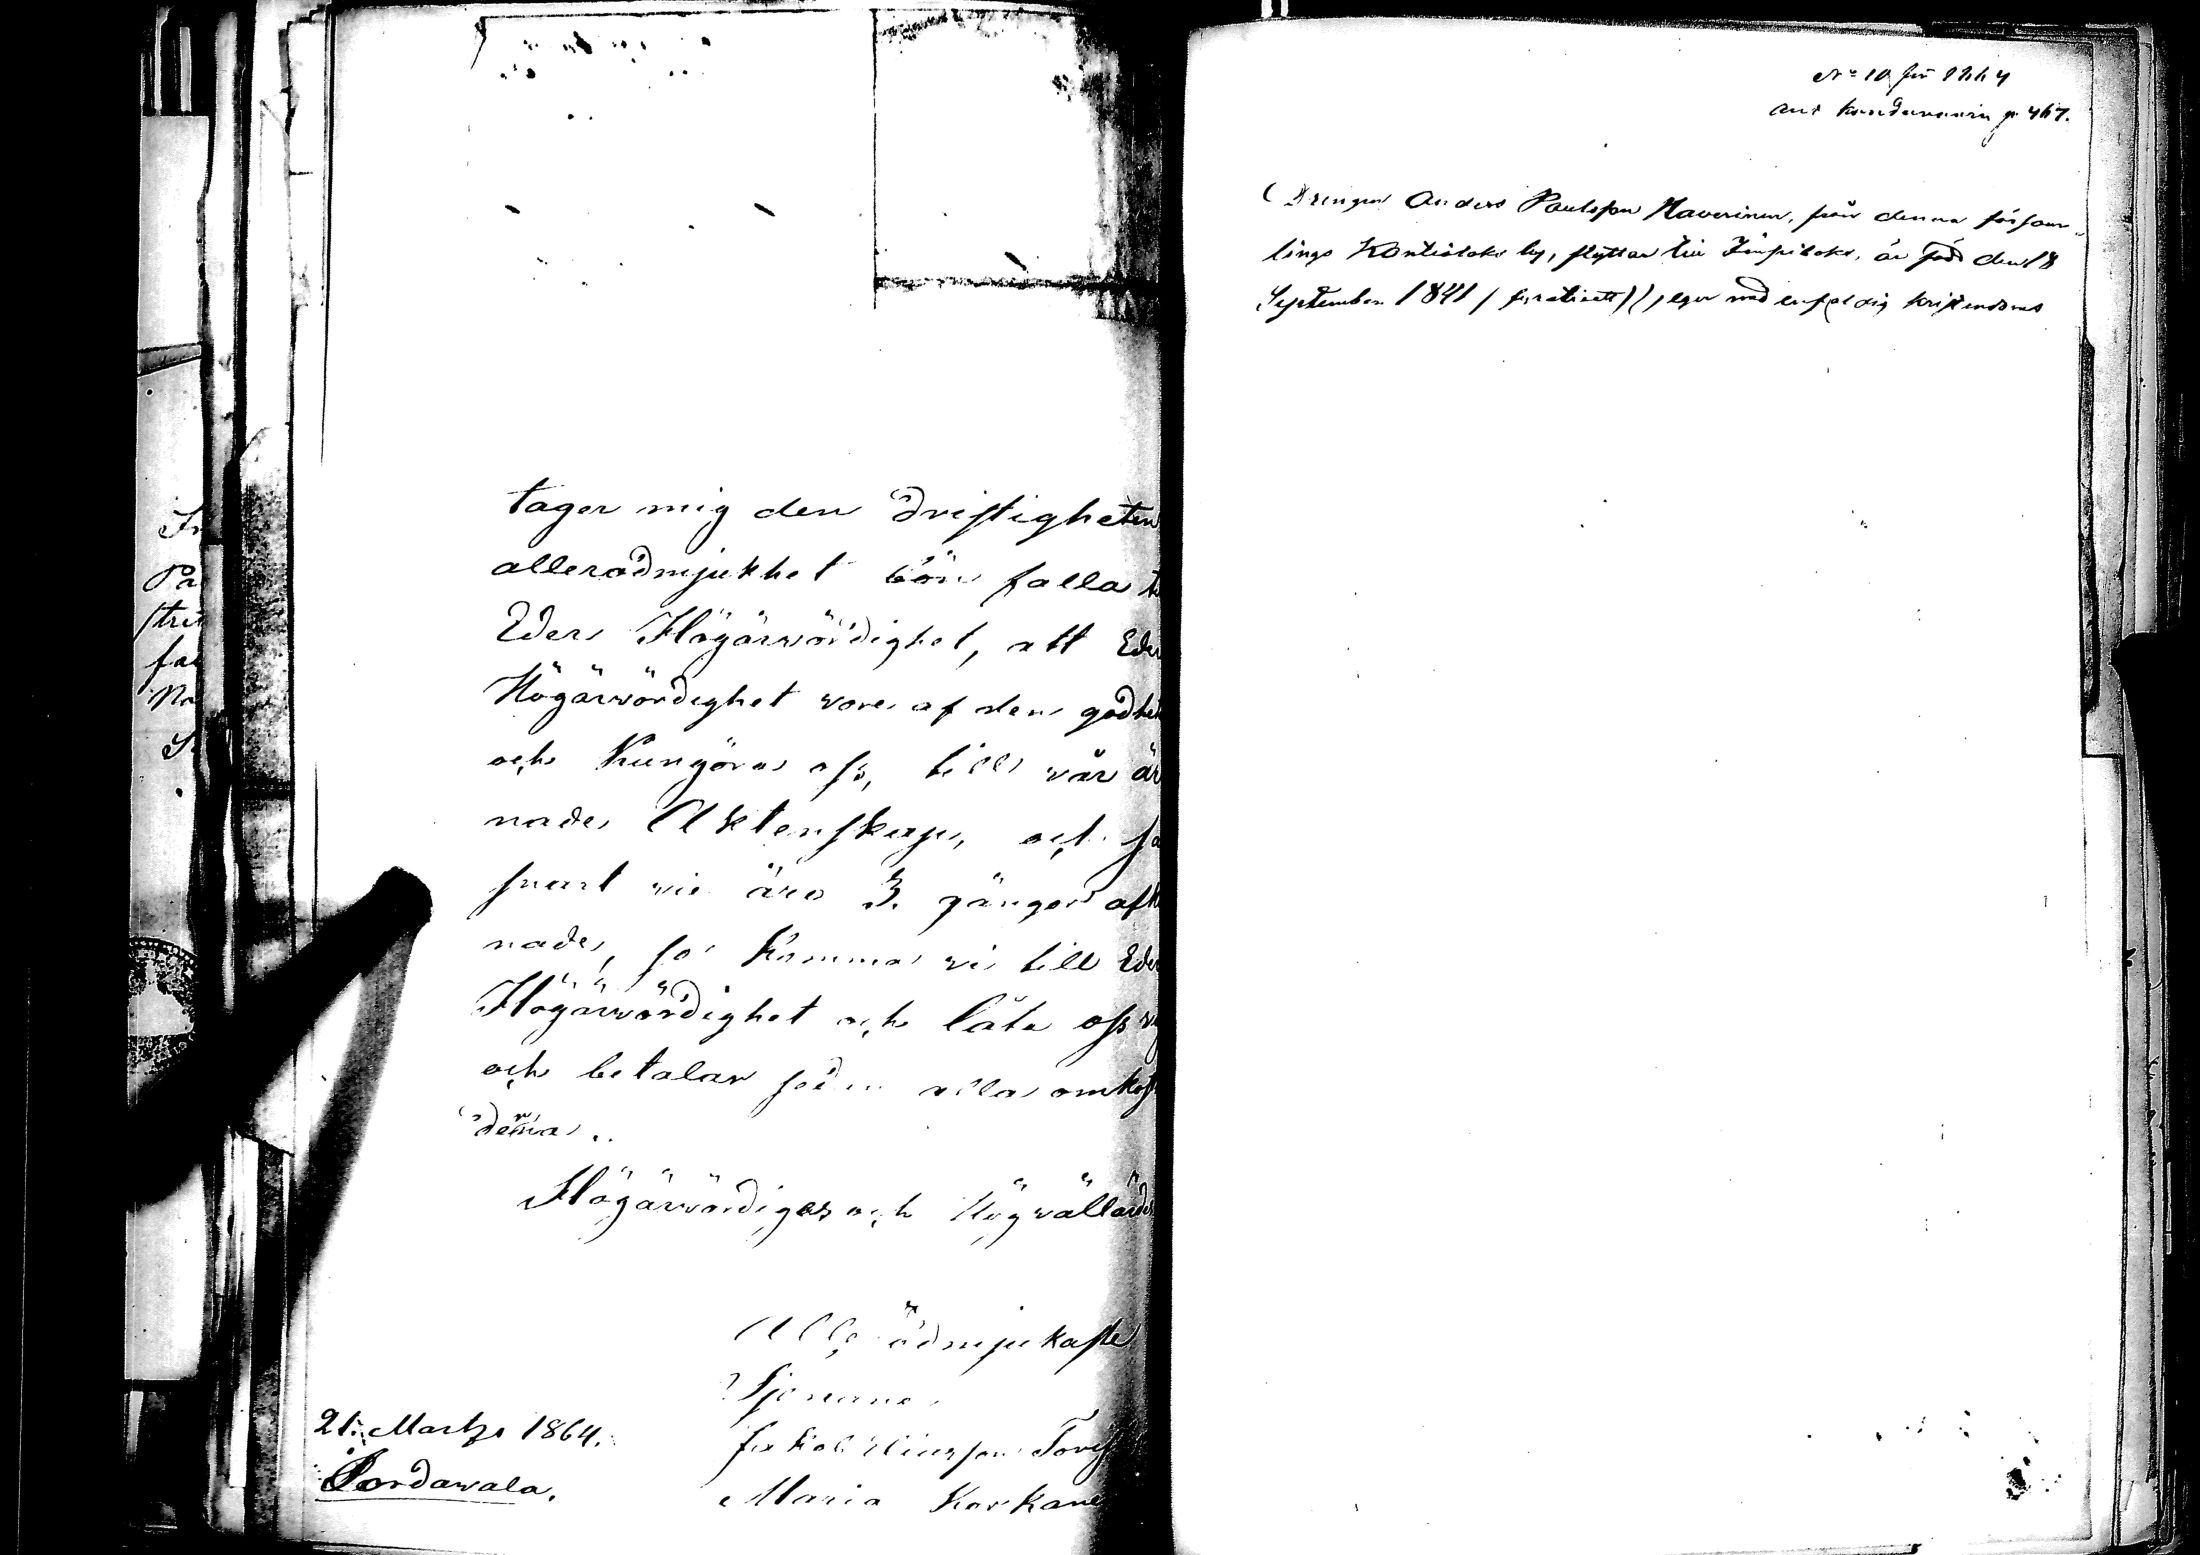 In
Pa
stri
fa
No
S
tager mig den dristigheten
allerödmjukhet bön falla t
Eders Högärwördighet, att Eder
Högärwördighet vore af den godhet
och Kungöra oss, till vår är
nade Aktenskap, och så
snart vie äro 3. gånger afk
nade, så komma vi till Eder
Högärwördighet och låta oss
och betalar sedan alla omkost
derna..
Högärwördiges och Högvällärde
Alle ödmjukaste
Tjenare
21. Martze 1864. Jakob
Sordawala. Maria Korkane
No 10 för 1864
p. 467.
Drengen Anders Paulsson Haverinen, från denna försam-
lings Kontiolaks by, flyttar till Impilaks, är född den 18
September 1841 / fyratiett / eger med enfaldig kristendoms